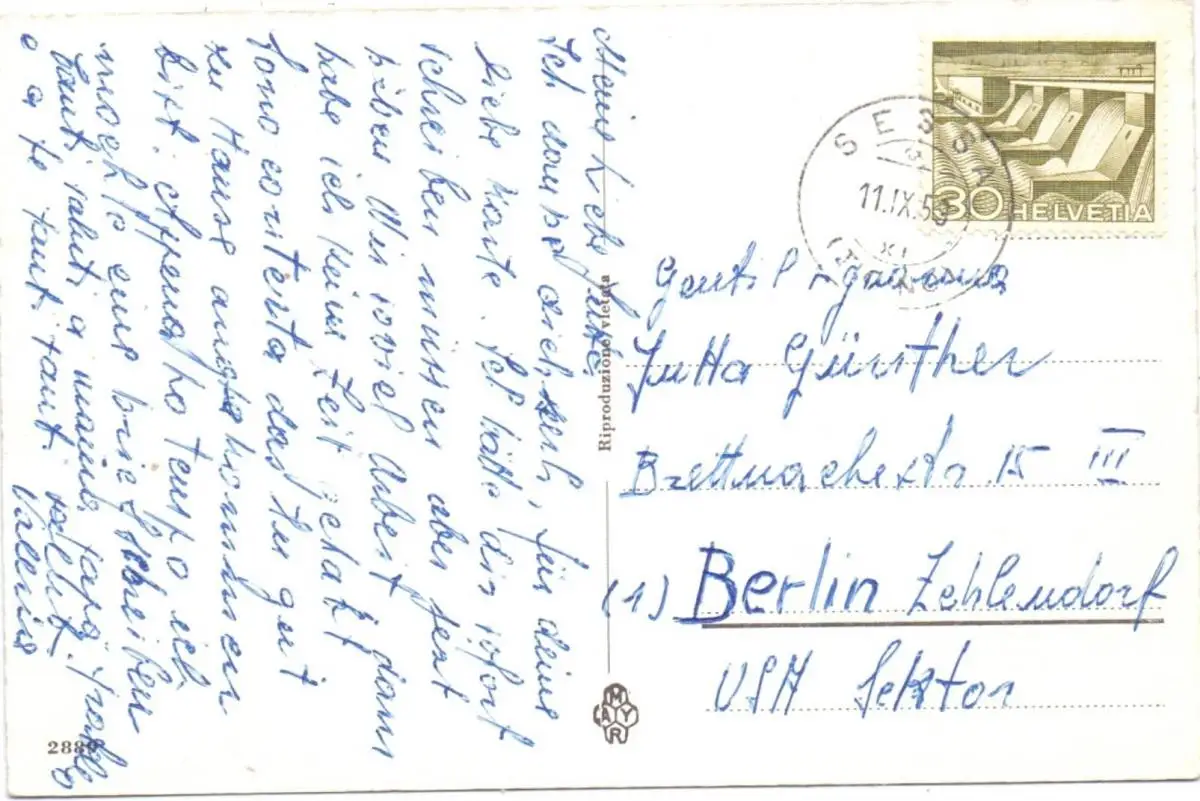 Meine liebe Jutta
Ich danke dich sehr, für deine
liebe Karte. Ich hätte dir sofort
schreiben müssen aber jetzt
haben Wir soviel Arbeit dann
habe ich keine Zeit gehabt
sono contenta das du gut
zu Hause angekommen
bist. Appena ho tempo ich
möchte eine brief schreiben
tanti saluti a mamma, papà,
e a te tanti tanti
Valeria
Riproduzione vietata
2889
MAYR
30 HELVETIA
SESSA
11.IX.53
XI
Gentil Signorina
Jutta Günther
15 III
(1) Berlin Zehlendorf
USA Sektor